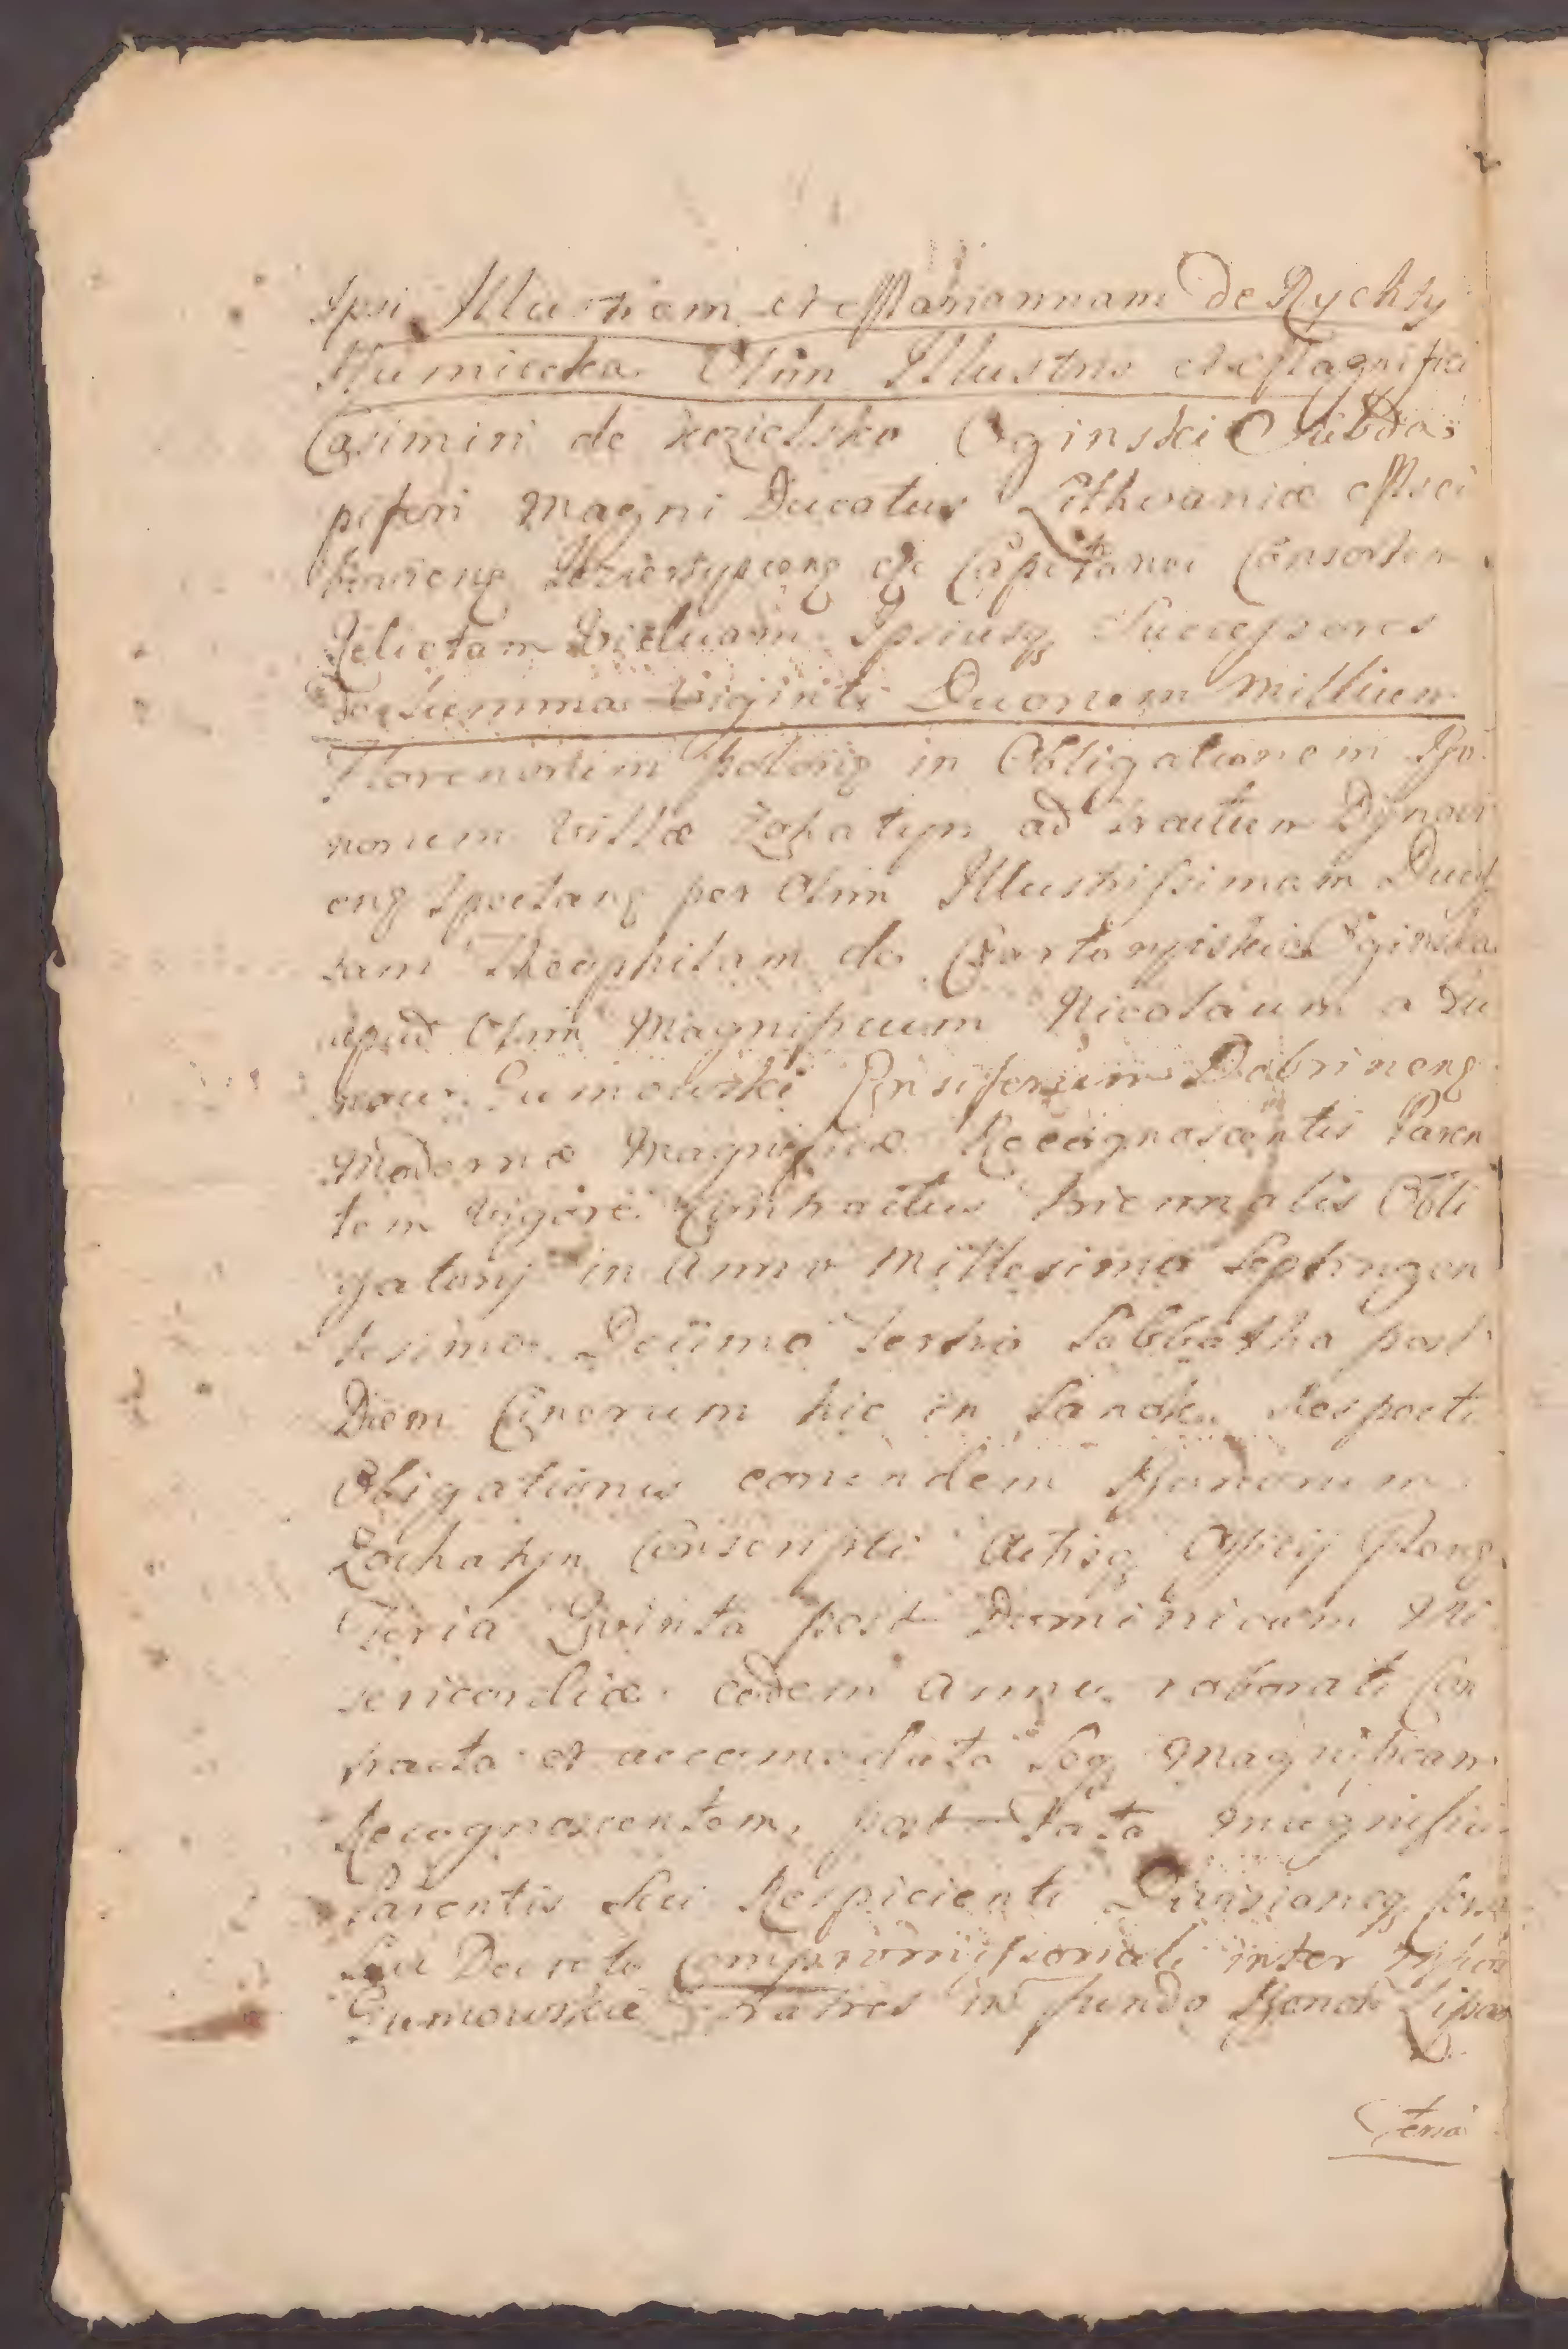 Ipsi Illustrem et Mariannam de Rychty
Humiecka Olim Illustris et Magnifici
Casimiri de Kozielsko Oginski Subda,
piferi Magni Ducatus Lithvaniæ Msci
Capitanei Consortem
Relictam Viduam Ipsiusq Successores
de Summa Viginti Duorum Millium
Florenorum polong in Obligationem Bo
norum Villæ Zohatyn ad tractum Dynovi
eng Spectang per Olim Illustrissimam Duci
sam Theophilam de Czartoryiskie Oginska
apud Olim Magnificum Nicolaum a Gu
mow Gumowski Ensiferum Dobrineng
Modernæ Magnificæ Recognoscentis Paren
tem Vigore Contractus triennalis Obli
gatorij in Anno Millesimo Septingen
tesimo Decimo tertio Sabbatho post
Diem Cinerum hic in Sanok Respecti
Obligationis eorundem Bonorum
Zochatyn Conscripti Actisq Officij
Feria Quinta post Dominicam Mi
sericordiæ eodem Anno roborati Con
tracta et accomodata Seq Magnificam
Recognoscentem, post Fata Magnifici
Parentis Sui Respicienti Divisioneq
Seu Decreto Compromissoriali inter
Gumowskie Fratres in fundo Bonor Lipow
Feria